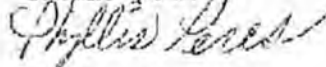 Phyllis Peres